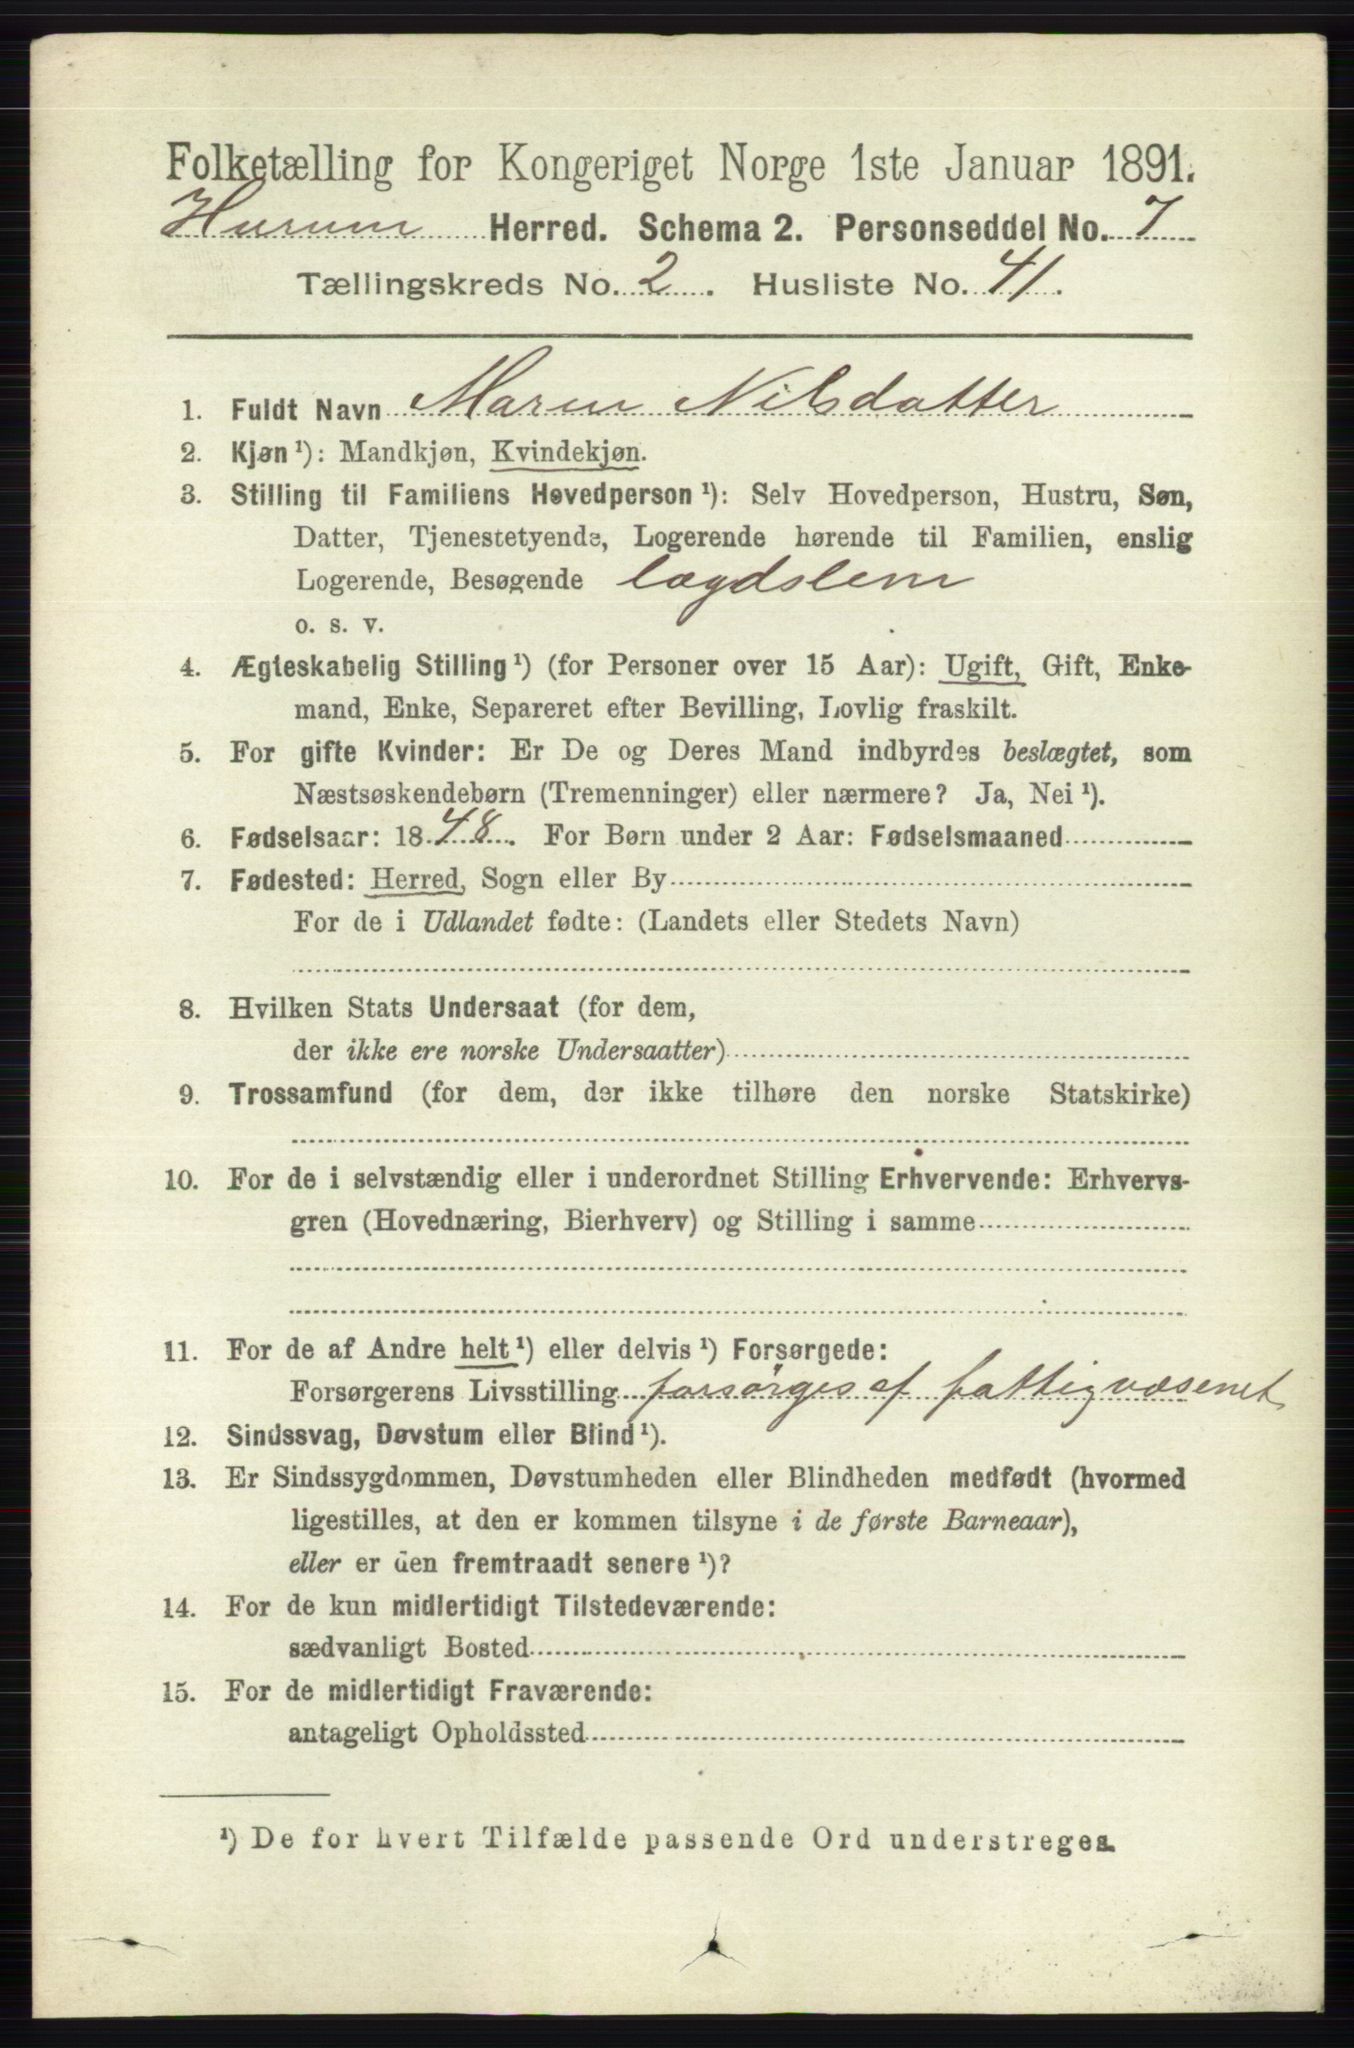 Folketælling for Kongeriget Norge 1ste Januar 1891.
Hurum Herred. Schema 2. Personseddel No. 7
Tællingskreds No. 2. Husliste No. 41.
1. Fuldt Navn Maren Nilsdatter
2. Kjøn ¹): Mandkjøn, Kvindekjøn.
3. Stilling til Familiens Hovedperson ¹): Selv Hovedperson, Hustru, Søn,
Datter, Tjenestetyende, Logerende hørende til Familien, enslig
Logerende, Besøgende lægdslem
o. s. v.
4. Ægteskabelig Stilling ¹) (for Personer over 15 Aar): Ugift, Gift, Enke-
mand, Enke, Separeret efter Bevilling, Lovlig fraskilt.
5. For gifte Kvinder: Er De og Deres Mand indbyrdes beslægtet, som
Næstsøskendebørn (Tremenninger) eller nærmere? Ja, Nei ¹).
6. Fødselsaar: 1848. For Børn under 2 Aar: Fødselsmaaned
7. Fødested: Herred, Sogn eller By
For de i Udlandet fødte: (Landets eller Stedets Navn)
8. Hvilken Stats Undersaat (for dem,
der ikke ere norske Undersaatter)
9. Trossamfund (for dem, der ikke tilhøre den norske Statskirke)
10. For de i selvstændig eller i underordnet Stilling Erhvervende: Erhvervs-
gren (Hovednæring, Bierhverv) og Stilling i samme
11. For de af Andre helt ¹) eller delvis ¹) Forsørgede:
Forsørgerens Livsstilling forsørges af fattigvæsenet
12. Sindssvag, Døvstum eller Blind ¹).
13. Er Sindssygdommen, Døvstumheden eller Blindheden medfødt (hvormed
ligestilles, at den er kommen tilsyne i de første Barneaar),
eller er den fremtraadt senere ¹)?
14. For de kun midlertidigt Tilstedeværende:
sædvanligt Bosted
15. For de midlertidigt Fraværende:
antageligt Opholdssted
¹) De for hvert Tilfælde passende Ord understreges.